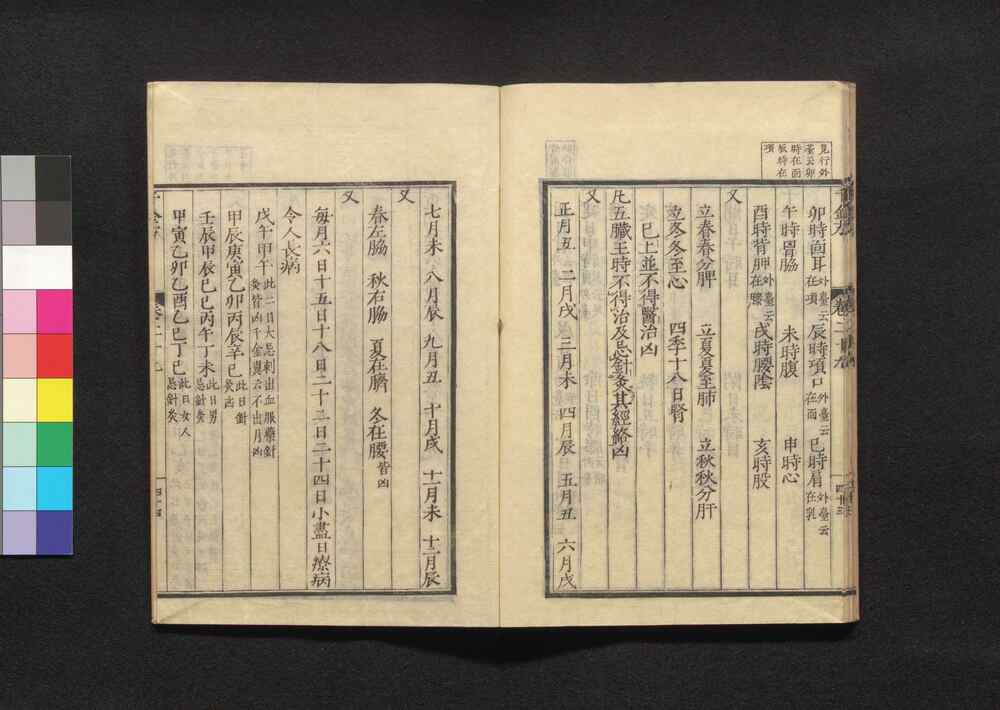 見行外
臺云卯
時在面
辰時在
項
卯時面耳外臺云在項 辰時項口外臺云在面 巳時肩外臺云在乳
午時胷脇 未時腹 申時心
酉時背胛外臺云在膝 戌時腰陰 亥時股
又
立春春分脾 立夏夏至肺 立秋秋分肝
立冬冬至心 四季十八日腎
巳上並不得醫治凶
凡五臟王時不得治及忌針灸其經絡凶
又
正月丑 二月戌 三月未 四月辰 五月丑 六月戌
七月未 八月辰 九月丑 十月戌 十一月未 十二月辰
又
春左脇 秋右脇 夏在臍 冬在腰皆凶
又
每月六日十五日十八日二十二日二十四日小盡日療病
令人長病
戊午甲午此二日大忌刺出血服藥針灸皆凶千金翼云不出月凶
甲辰庚寅乙卯丙辰辛巳此日針灸凶
壬辰甲辰巳巳丙午丁未此日男忌針灸
甲寅乙卯乙酉乙巳丁巳此日女人忌針灸